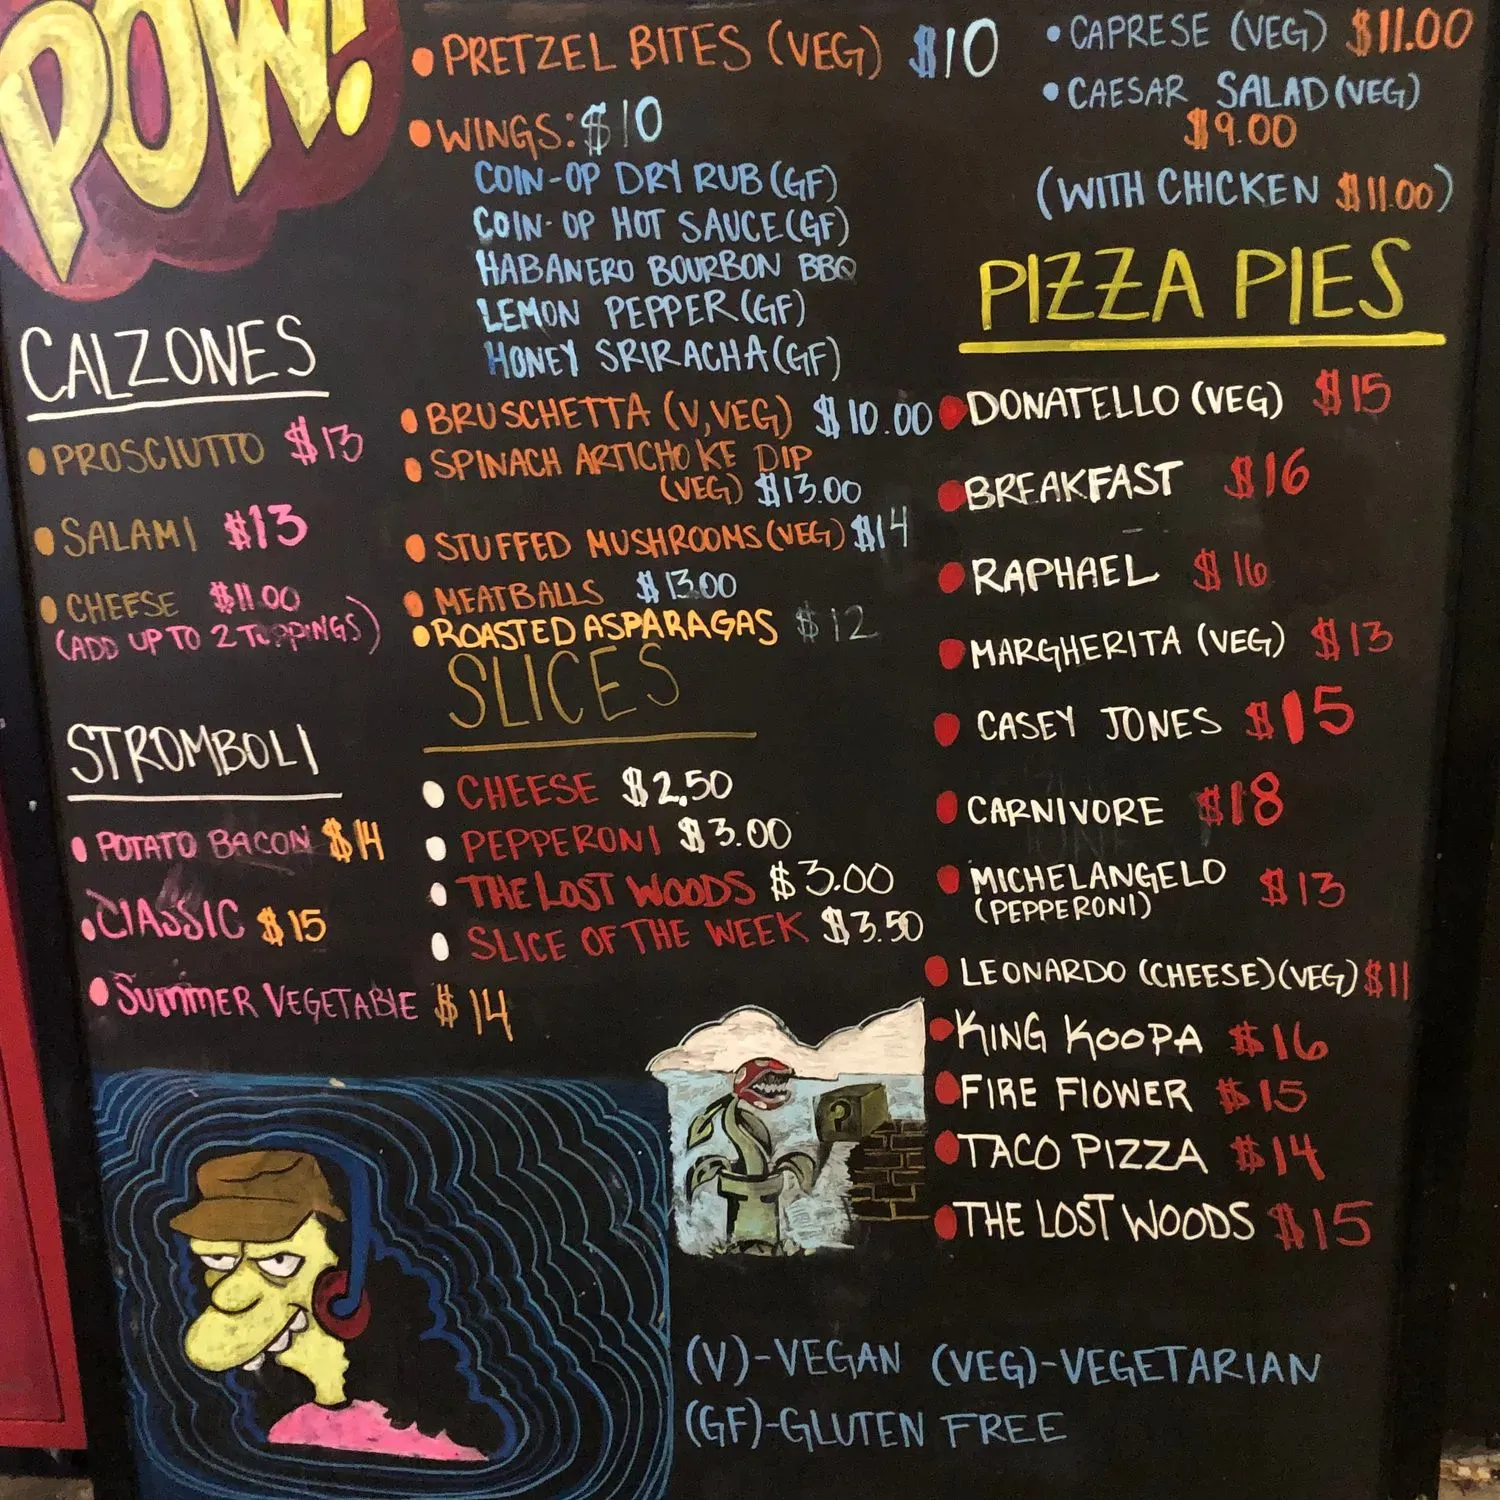 POW!
• PRETZEL BITES (VEG) $10
• WINGS: $10
COIN-OP DRY RUB (GF)
COIN-OP HOT SAUCE (GF)
HABANERO BOURBON BBQ
LEMON PEPPER (GF)
HONEY SRIRACHA (GF)
• BRUSCHETTA (V, VEG) $10.00
• SPINACH ARTICHOKE DIP
(VEG) $13.00
• STUFFED MUSHROOMS (VEG) $14
• MEATBALLS $13.00
• ROASTED ASPARAGAS $12
• CAPRESE (VEG) $11.00
• CAESAR SALAD (VEG)
$9.00
(WITH CHICKEN $11.00)
CALZONES
• PROSCIUTTO $13
• SALAMI $13
• CHEESE $11.00
(ADD UP TO 2 TOPPINGS)
STROMBOLI
• POTATO BACON $14
• CLASSIC $15
• SUMMER VEGETABLE $14
SLICES
• CHEESE $2.50
• PEPPERONI $3.00
• THE LOST WOODS $3.00
• SLICE OF THE WEEK $3.50
PIZZA PIES
• DONATELLO (VEG) $15
• BREAKFAST $16
• RAPHAEL $16
• MARGHERITA (VEG) $13
• CASEY JONES $15
• CARNIVORE $18
• MICHELANGELO $13
(PEPPERONI)
• LEONARDO (CHEESE) (VEG) $11
• KING KOOPA $16
• FIRE FLOWER $15
• TACO PIZZA $14
• THE LOST WOODS $15
?
(V)-VEGAN (VEG)-VEGETARIAN
(GF)-GLUTEN FREE